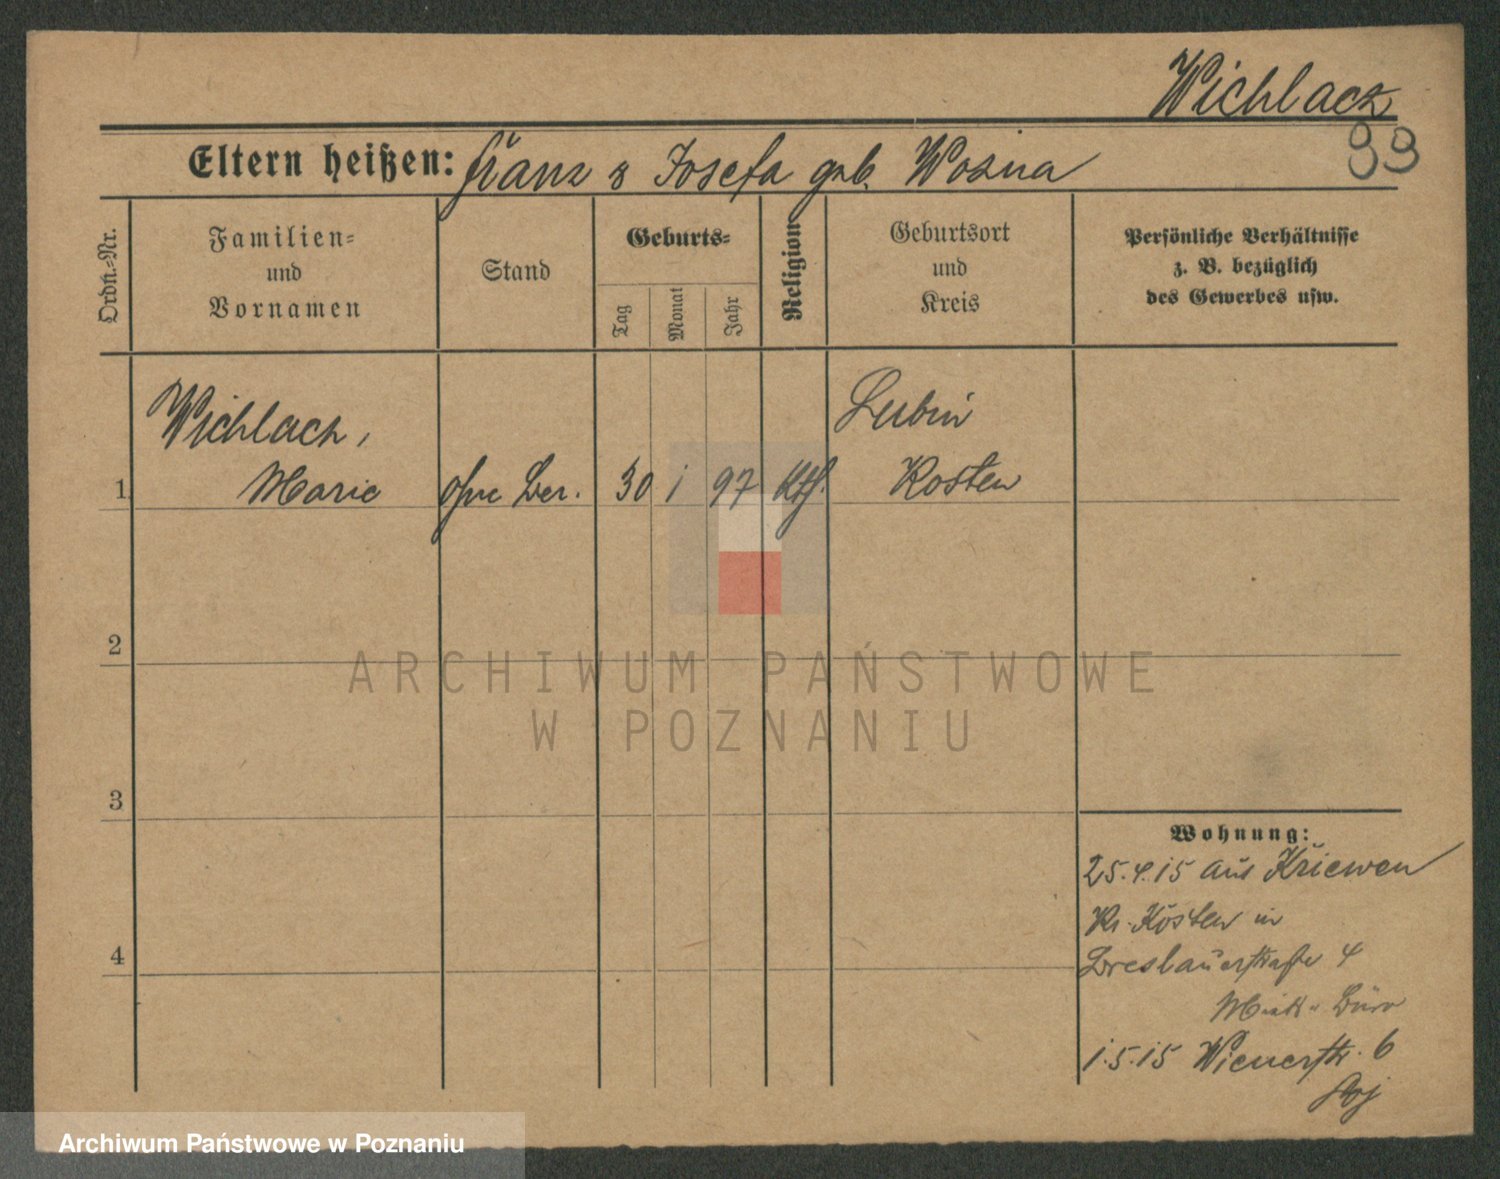 Wichlacz
99
Eltern heißen: Franz & Josefa geb. Wosna
Ordn.-Nr.
Familien-
und
Vornamen
Stand
Geburts-
Tag
Monat
Jahr
Religion
Geburtsort
und
Kreis
Persönliche Verhältnisse
z. B. bezüglich
des Gewerbes usw.
Wichlacz,
Lubin
1 Marie ohne Ber. 30 1 97 kth. Kosten
2
ARCHIWUM PAŃSTWOWE
W POZNANIU
3
4
Wohnung:
25.4.15 aus Kriewen
Kr. Kosten in
Breslauerstraße 4
Miet- Büro
1.5.15 Wienerstr. 6
Archiwum Państwowe w Poznaniu